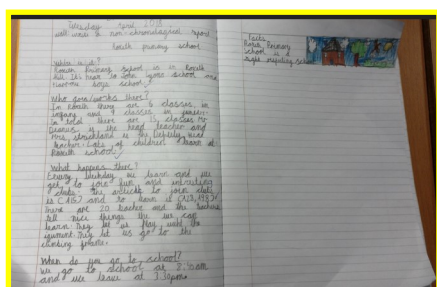 Tuesday april 2018
walt write a non-chronological report
Roxeth primary school
Where is it?
Roxeth Primary School is in Roxeth
hill. It's near to John lyons school and
Harrow boys school.
Who goes/works there?
In Roxeth there are 6 classes in
infants and 9 classes in juniors.
in total there are 15 classes. Mr
is the head teacher and
Mrs. strickland is the deputy head
teacher. Lots of children learn at
Roxeth school.
What happens there?
Every weekday we learn and we
get to join fun and intresting
clubs. the to join clubs
is and to learn is
there are 20 teacher and the teachers
tell nice things the we can
learn. They let us play with the
They let us go to the
climbing frame.
When do you go to school?
We go to school at 8: am
and we leave at 3:30pm.
Facts
Roxeth Primary
school is a
school